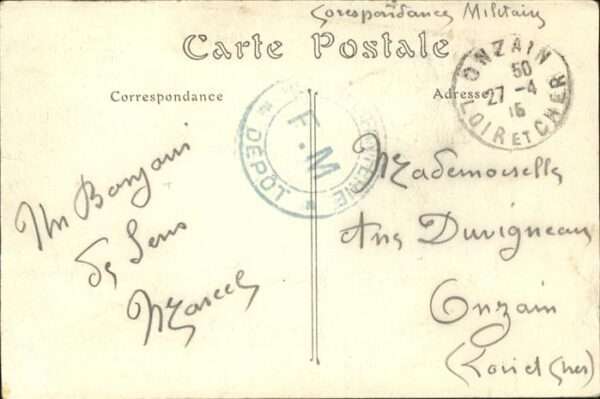 Corespondance Militaire
Carte Postale
Correspondance
Adresse
ONZAIN
50
27 -4
15
LOIR ET CHER
F.M
DÉPÔT
Un Bonjour
de Sens
Marcel
Mademoiselle
Duvigneau
Onzain
(Loir et Cher)